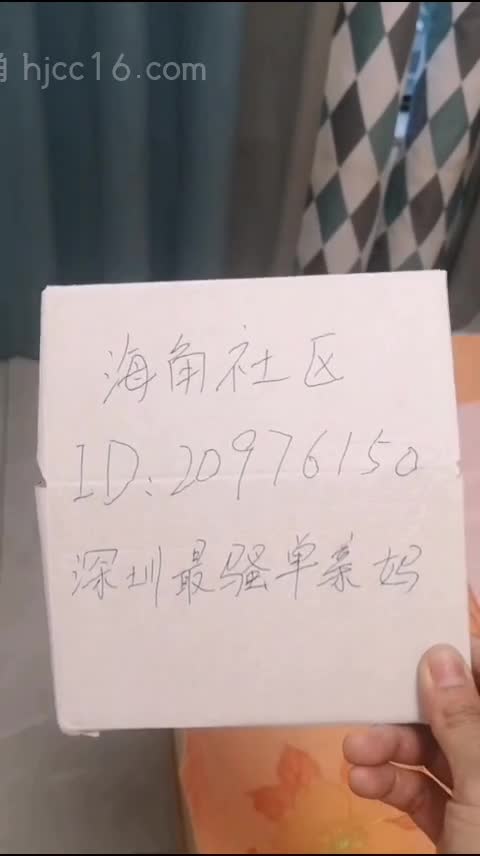 角 hjcc16.com
海角社区
ID:20976150
深圳最骚单亲妈